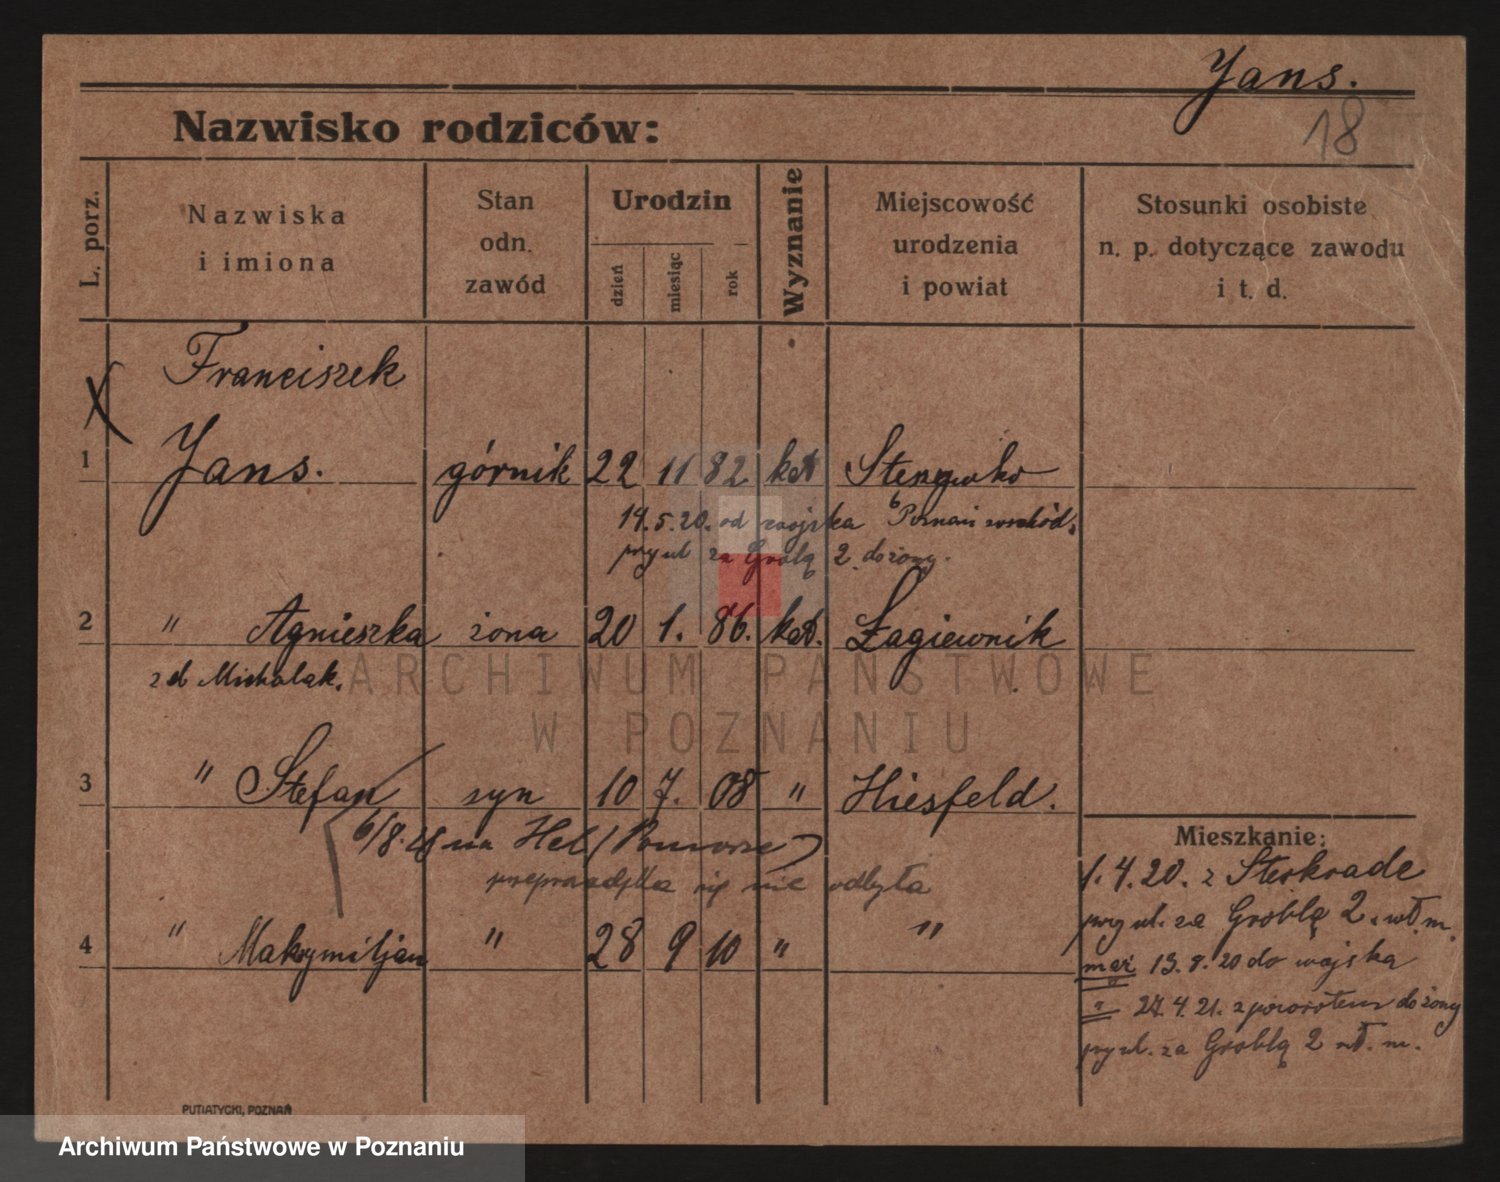 Yans.
18
Nazwisko rodziców:
L. porz.
Nazwiska
i imiona
Stan
odn.
zawód
Urodzin
dzień
miesiąc
rok
Wyznanie
Miejscowość
urodzenia
i powiat
Stosunki osobiste
n. p. dotyczące zawodu
i t. d.
Franciszek
1 Yans. górnik 22 11 82 kat
14.5.20. od wojska Poznań wschód.
przy ul za Groblą 2. do żony.
2 " Agnieszka żona 20 1. 86. kat. Łagiewnik
z d Michalak.
3 " Stefan syn 10 7. 08 " Hiesfeld.
6/8.28 na Hel (Pomorze)
przeprowadzka się nie odbyła
4 " Maksymiljan " 28 9 10 " "
Mieszkanie:
1.4.20. z Sterkrade
przy ul. za Groblą 2. wł. m.
mąż 13.8.20 do wojska
" 27.4.21. z powrotem do żony
przy ul. za Groblą 2 wł. m.
PUTIATYCKI, POZNAŃ
ARCHIWUM PAŃSTWOWE
W POZNANIU
Archiwum Państwowe w Poznaniu